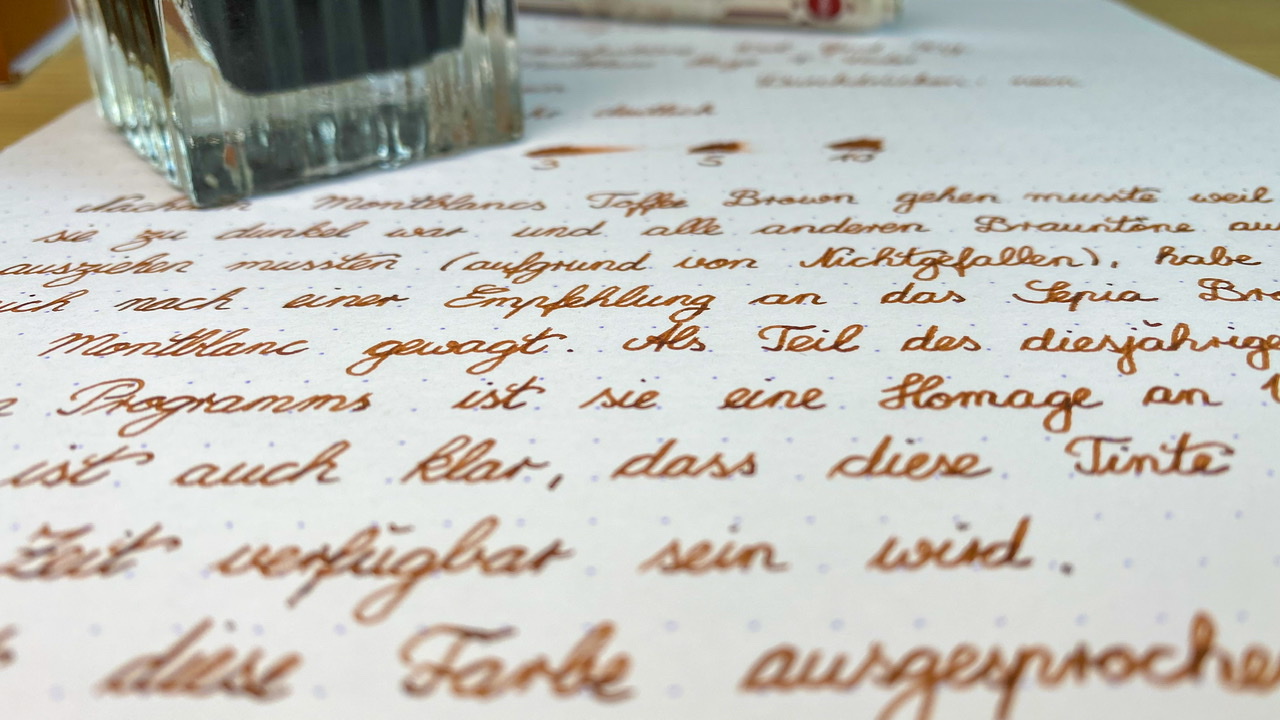 deutlich
3 5 10
Nachdem Montblancs Toffee Brown gehen musste weil
sie zu dunkel war und alle anderen Brauntöne au
ausziehen mussten (aufgrund von Nichtgefallen), habe
ich nach einer Empfehlung an das Sepia Bro
Montblanc gewagt. Als Teil des diesjährige
n Programms ist sie eine Homage an
ist auch klar, dass diese Tinte
Zeit verfügbar sein wird.
diese Farbe ausgesproche